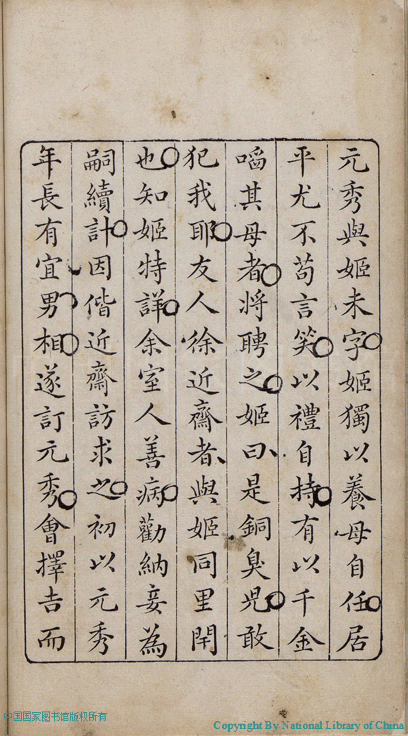 元秀與姬未字姬獨以養母自任居
平尤不苟言笑以禮自持有以千金
啗其母者將聘之姬曰是銅臭児敢
犯我耶友人徐近齋者與姬同里閈
也知姬特詳余室人善病勸納妾為
嗣續計因偕近齋訪求之初以元秀
年長有宜男相遂訂元秀會擇吉而
中国国家图书馆版权所有
Copyright By National Library of China